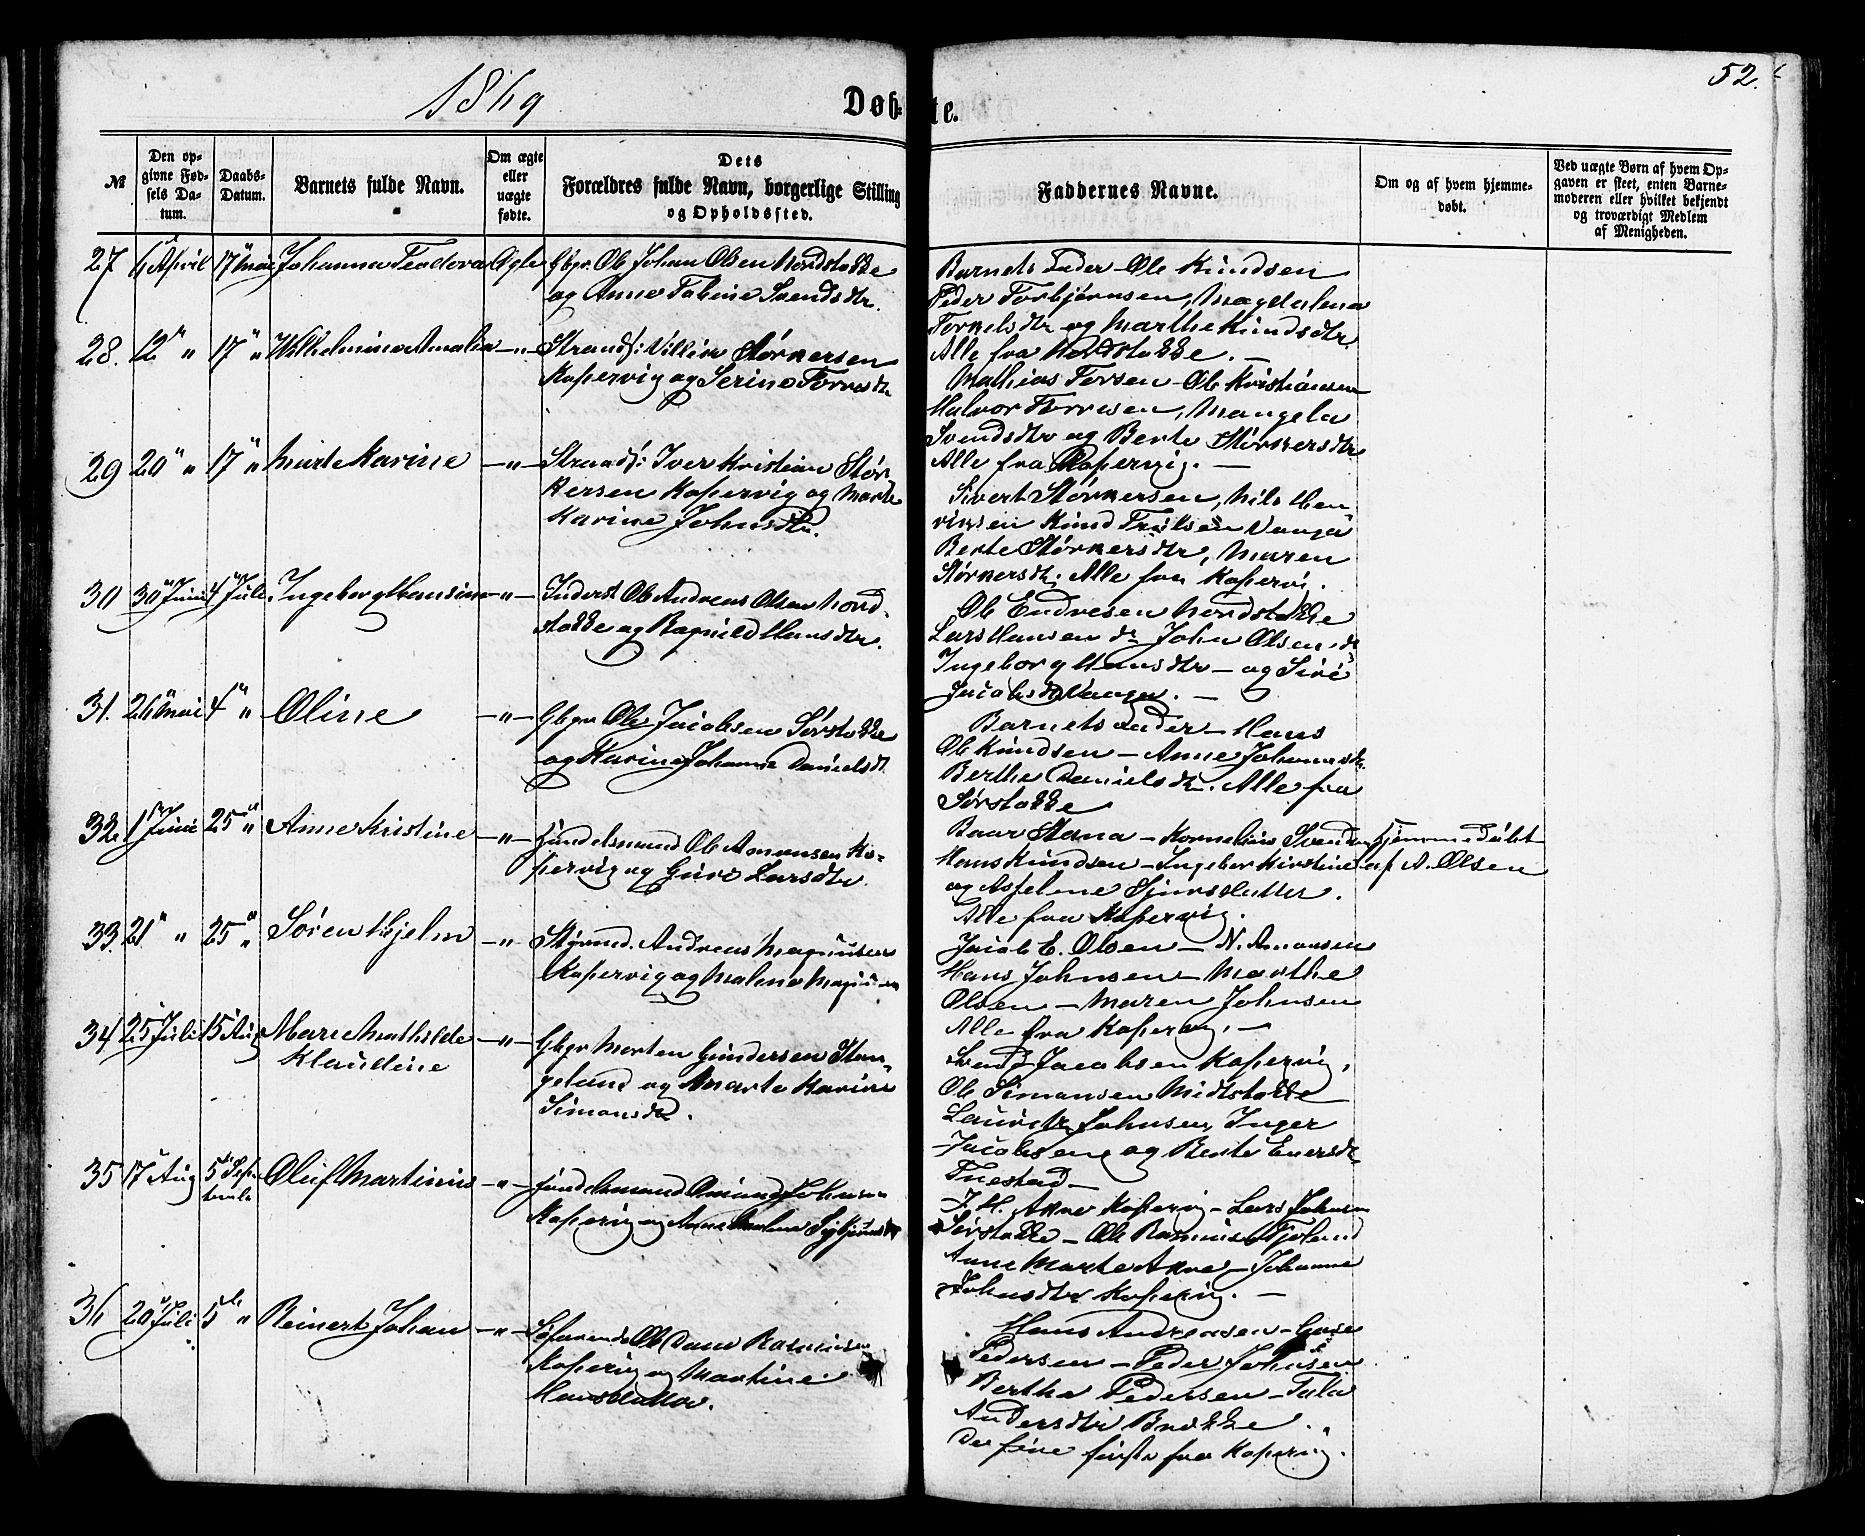 1869
Døb-
te.
52.
№
Den op-
givne Fød-
sels Da-
tum.
Daabs-
Datum.
Barnets fulde Navn.
Om ægte
eller
uægte
fødte.
Dets
Forældres fulde Navn, borgerlige Stilling
og Opholdssted.
Faddernes Navne.
Om og af hvem hjemme-
døbt.
Ved uægte Børn af hvem Op-
gaven er skeet, enten Barne-
moderen eller hvilket bekjendt
og troværdigt Medlem
af Menigheden.
27 6 April 17 Mai Johanna Teodora Ægte Gbgr. Ole Johan Olsen Nordstokke
og Anne Tobine Svendsdtr.
Barnets Fader - Ole Knudsen
Peder Torbjørnsen, Magdalena
Torkelsdtr og Marthe Knudsdtr.
Alle fra Nordstokke. -
28. 12 " " 17 " " Wilhelmine Amalia -"- Strands: Villik Størkersen
Kopervig og Serine Torresdtr
Mathias Torsen - Ole Kristiansen
Halvor Torresen, Mangela
Svendsdtr og Berte Størkersdtr
Alle fra Kopervig. -
29 20 " " 17 " " Marte Karine -"- Strands: Iver Kristian Stør-
kersen Kopervig og Marte
Karine Johnsdtr.
Sivert Størkersen, Nils Hen-
riksen Knud Trulsen Vanga
Berte Størkersdtr, Maren
Størkersdtr. Alle fra Kopervi.
30 30 Juni 4 Juli Ingeborg Hansine -"- Inderst Ole Andreas Olsen Nord-
stokke og Ragnild Hansdtr.
Ole Endresen Nordstokke
Lars Hansen do John Olsen do
Ingeborg Hansdtr - og Siri
Jacobsdtr Vanga. -
31. 26 Mai 4 " " Oline -"- Gbgr Ole Jacobsen Sørstokke
og Karine Johanne Danielsdtr
Barnets Fader - Hans
Ole Knudsen - Anne Johannesdtr.
Berthe Danielsdtr. Alle fra
Sørstokke
32. 1 Juni 25 " " Anne Kristine -"- Handelsmand Ole Amonsen Ko-
pervig og Guro Larsdtr
Baar Stana - Kornelius Svendsen
Hans Knudsen - Ingebor Kirstine
og Aspeline Sjursdatter.
Alle fra Kopervig.
Hjemmedøbt
af A. Olsen
33. 21 " " 25 " " Søren Hjelm -"- Styrmd. Andreas Magnussen
Kopervig og Malene Magnussen
Jacob E. Olsen - N. Amonsen
Hans Johnsen - Marthe
Olsen - Maren Johnsen
Alle fra Kopervig. -
34 25 Juli 15 Aug Marie Mathilde -"- Gbgr Morten Gundersen Stan-
Klaudine
geland og Marte Karine
Simonsdtr.
Svend Jacobsen Kopervig,
Ole Simonsen Midtstokke
Lauritz Johnsen, Inger
Jacobsen og Berte Enersdtr
Tuestad -
35 17 Aug 5 Sep-
tembr
Oluf Martinius -"- Handelsmand Omund Johnsen
Kopervig og Anne Malene Sigbjørnsdtr
J. H. Akre Kopervig - Lars Johnsen
Sørstokke - Ole Rasmussen Fjeland
Anne Marte Akre - Johanne
Johnsdtr Kopervig. -
36 20 Juli 5 " Reinert Johan -"- Søfarende Ole Dani Rasmussen
Kopervig og Martine
Hansdatter.
Hans Andreasen -
Pedersen - Peder Johnsen
Bertha Pedersen - Tala
Andersdtr Brekke.
De fire første fra Kopervig.